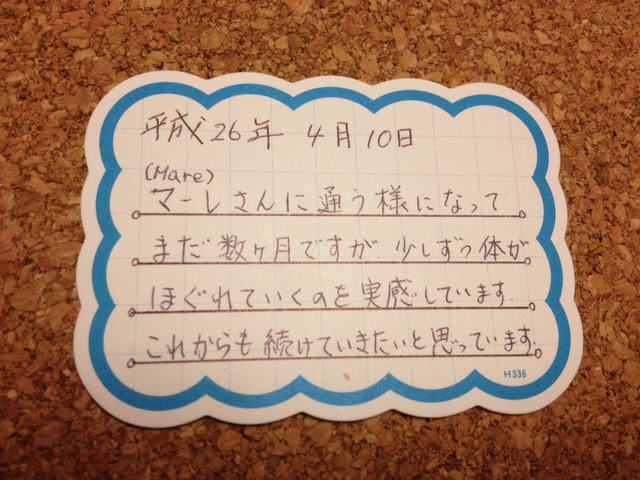 平成26年 4月10日
(Mare)
マーレさんに通う様になって
まだ数ヶ月ですが 少しずつ体が
ほぐれていくのを実感しています.
これからも続けていきたいと思っています.
H336